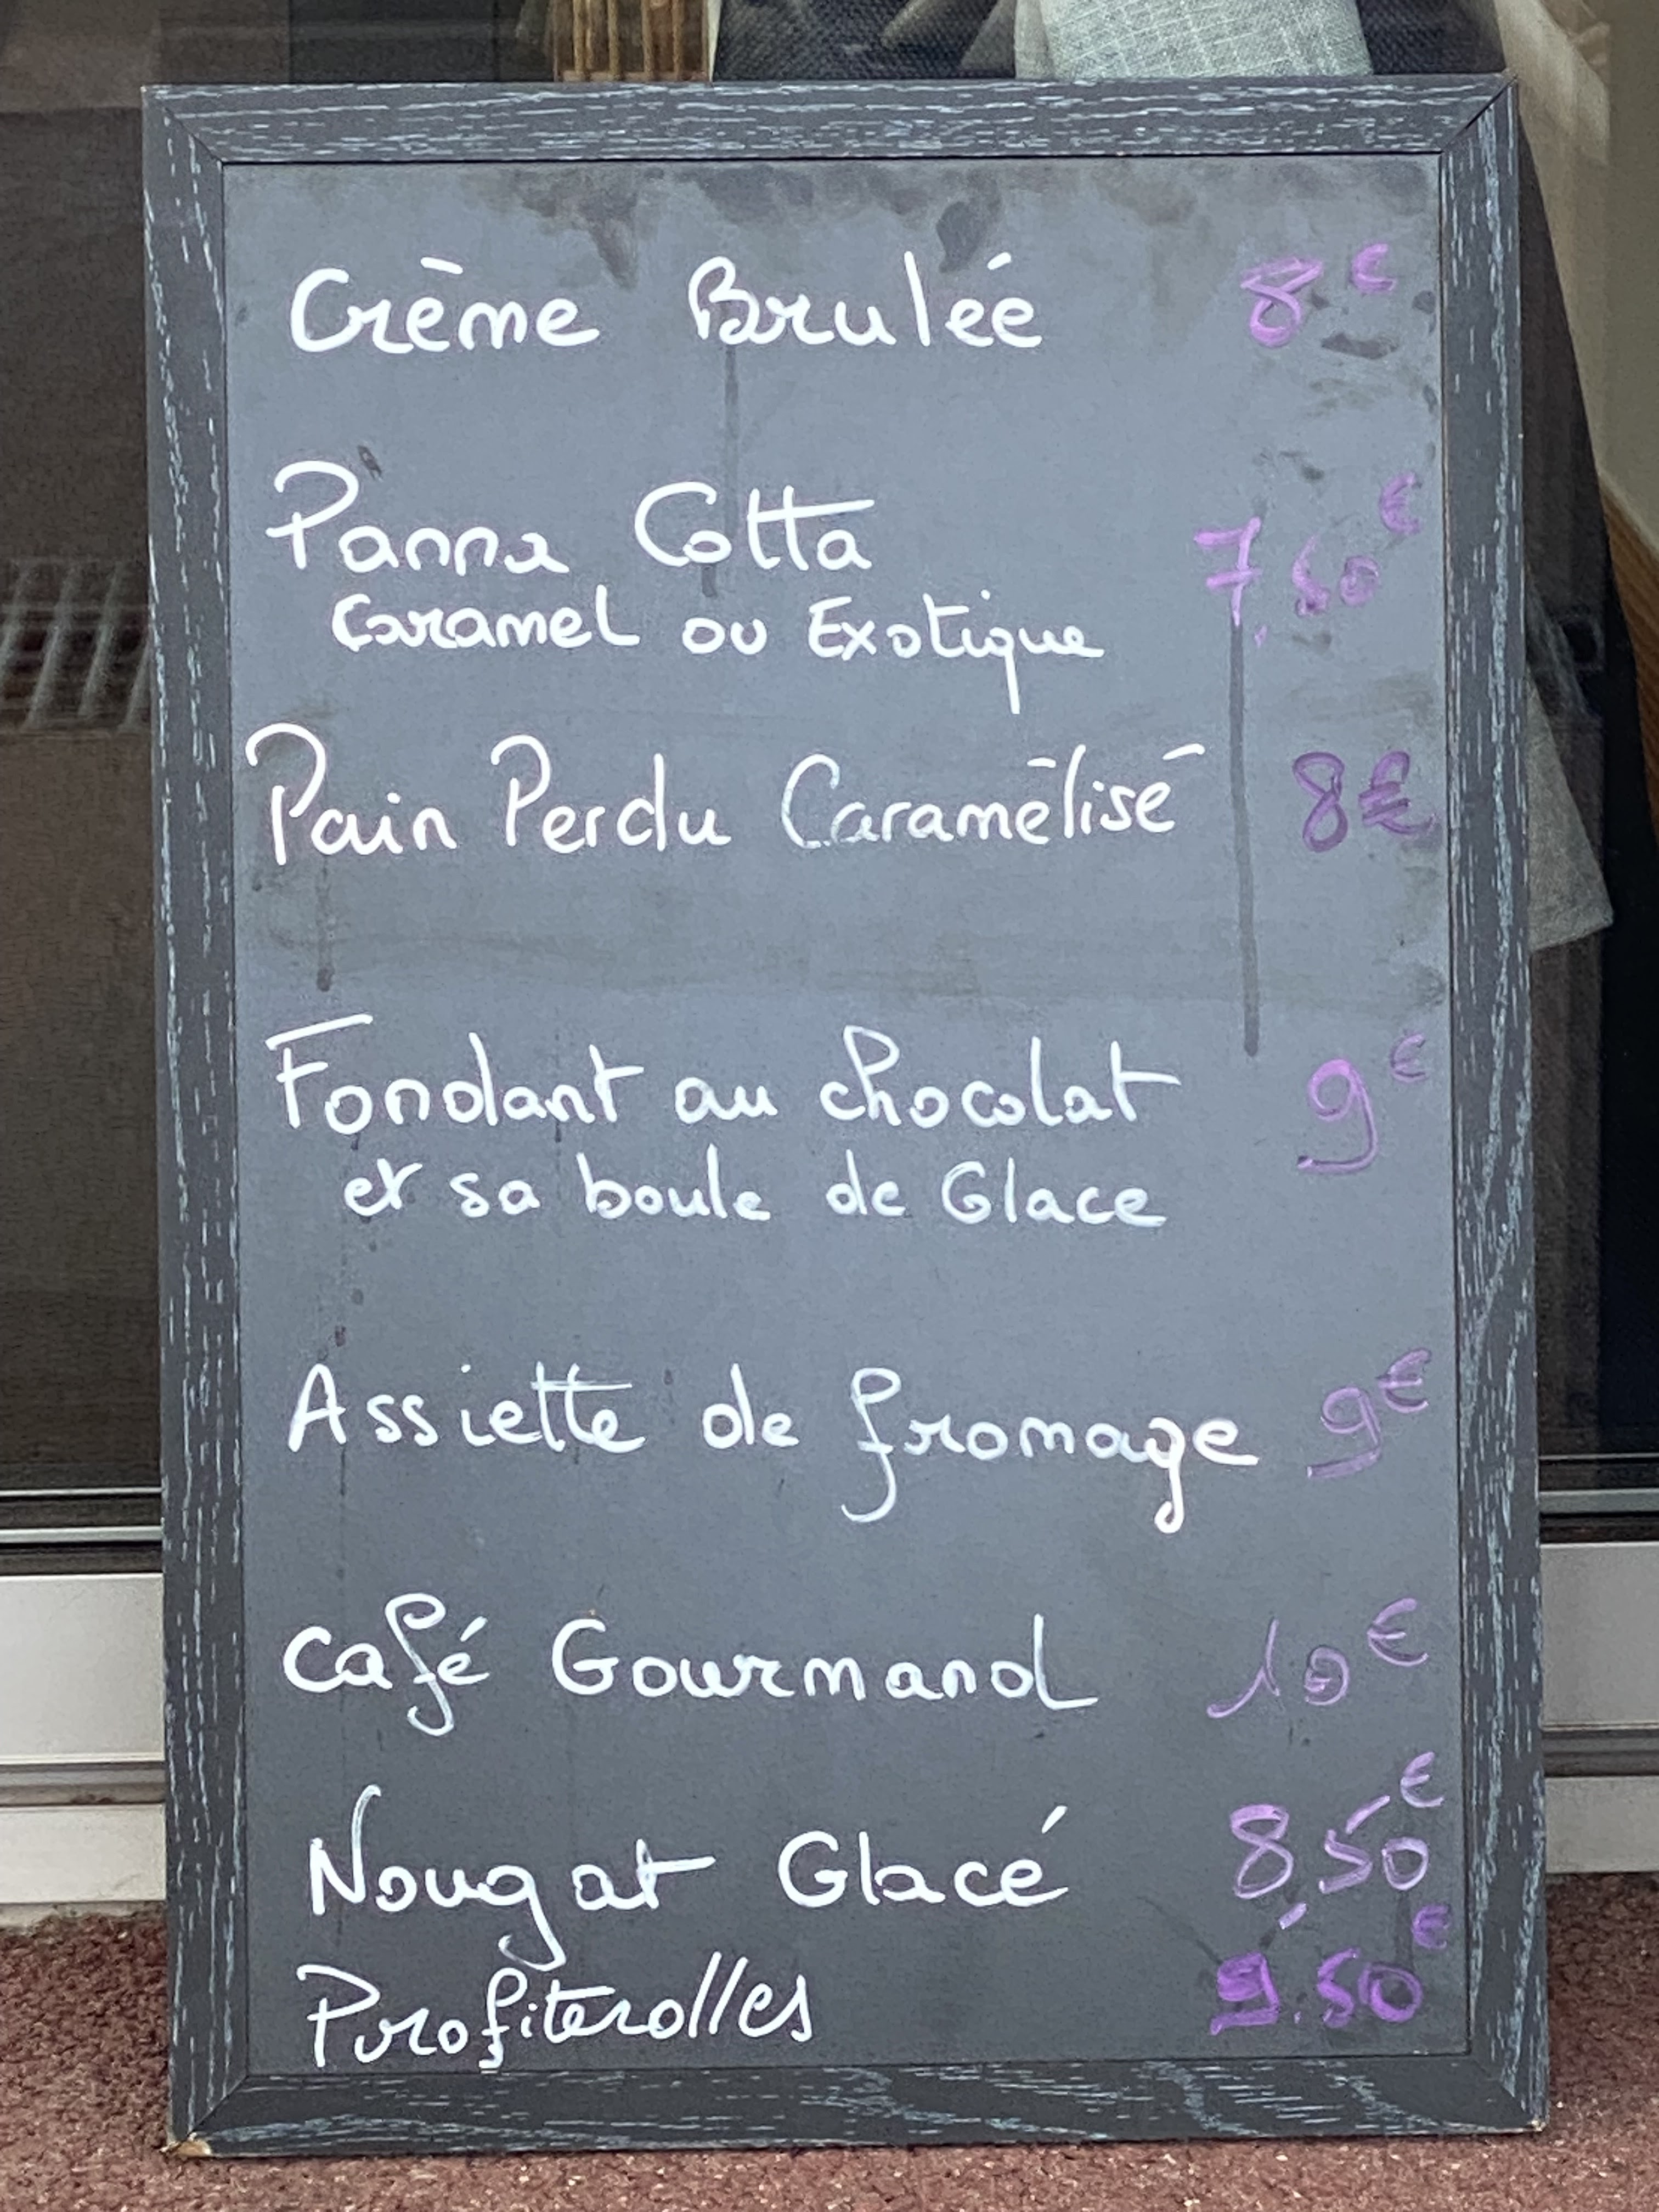 Crème Bruleé 8€
Panna Cotta 7,50€
Caramel ou Exotique
Pain Perdu Caramélisé 8€
Fondant au chocolat 9€
et sa boule de Glace
Assiette de fromage 9€
Café Gourmand 10€
Nougat Glacé 8,50€
Profiterolles 9.50€